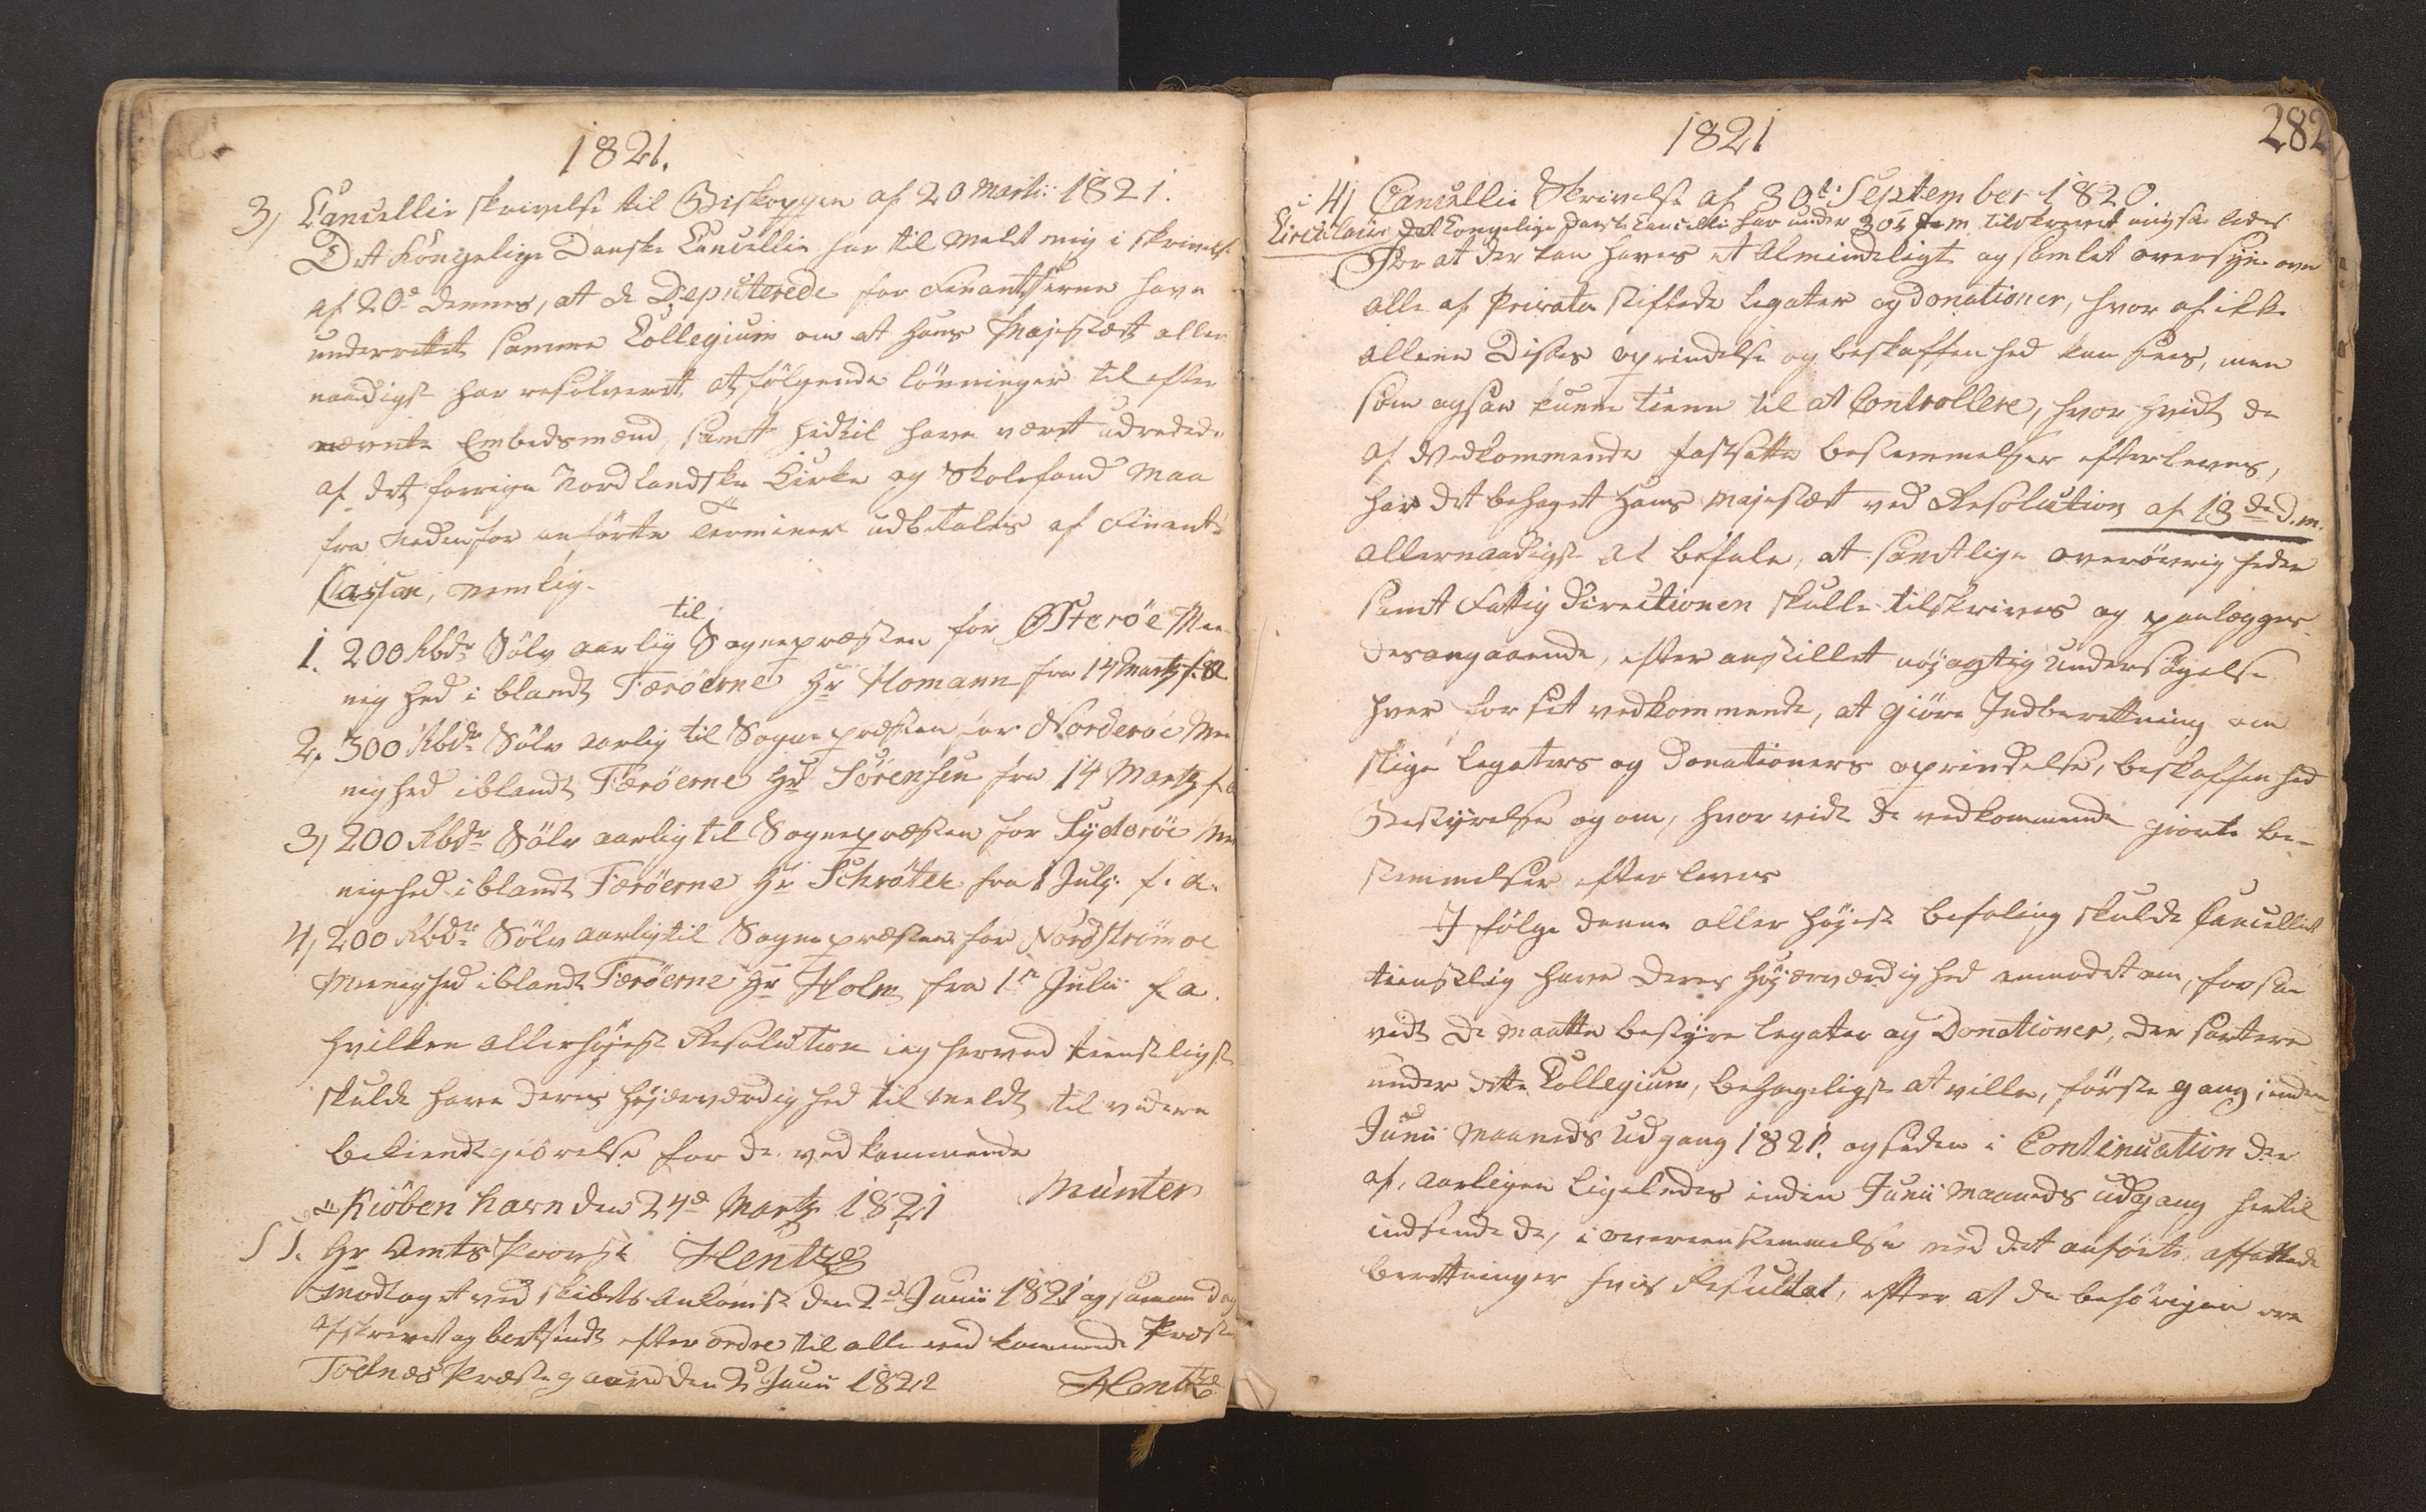 1821.
3) Cancellie skrivelse til Biskoppen af 20 Martii 1821.
Det Kongelige Danske Cancellie har til meldt mig i skrivelse
af 20de dennes, at de Deputerede for Finantserne have
underrettet samme Collegium om at Hans Majestæt aller
naadigst har resolveret, at følgende Lønninger til efter
nævnte Embedsmænd, samt hidtil have været udredede
af det forrige Nordlandske Kirke og Skolefond maa
fra nedenfor anførte Terminer udbetales af Finants
Cassen, nemlig.
1. 200 Rbdr Sølv aarlig til Sognepræsten for Østerøe Me-
nighed i blandt Færøerne Hr Homann fra 14 Martz f. a.
2. 300 Rbdr Sølv aarlig til Sognepræsten for Norderøe Me
nighed iblandt Færøerne Hr Sørensen fra 14 Martz f. a
3) 200 Rbdr Sølv aarlig til Sognepræsten for Syderøe Me
nighed iblandt Færøerne Hr Schrøter fra 1 Julj f. a.
4) 200 Rbdr Sølv aarlig til Sognepræsten for Nordstrømøe
Menighed iblandt Færøerne Hr Holm fra 1te Julii f. a.
hvilken allerhøjeste Resolution jeg herved tienstligst
skulde have deres Højærværdighed til meldt til videre
bekiendtgiørelse for de vedkommende
Kiøbenhavn den 24de Martz 1821 Münter
S T. Hr Amts Provst Hentze
Modtaget ved skibets Ankomst den 2d Junii 1821 og samme Dag
afskrevet og bortsendt efter ordre til alle vedkommende Præster
Todnæs Præstegaard den 2d Junii 1821 Hentze
1821
282
4) Cancellie Skrivelse af 30te September 1820.
Circulaire Det Kongelige Danske Cancellie har under 30te f. m. tilskrevet mig saaledes
For at der kan haves et Almindeligt og samlet oversyn over
alle af Private stiftede Legater og Donationer, hvor af ikke
alleene Disses oprindelse og beskaffenhed kan sees, men
som ogsaa kunne tiene til at Controllere, hvor hvidt de
af Vedkommende fastsatte bestemmelser efterleves,
har det behaget Hans Majestæt ved Resolution af 13de d. m.
allernaadigst at befale, at samtlige overøvrigheder
samt Fattig Directionen skulle tilskrives og paalægges
desangaaende, efter anstillet nøjagtig Undersøgelse
hver for sit vedkommende, at giøre Indberetning om
slige Legaters og Donationers oprindelse, beskaffenhed
Bestyrelse og om, hvor vidt de vedkommende giorte be-
stemmelser efterleves
I følge denne aller højeste befaling skulde Cancelliet
tienstlig have Deres Højærværdighed anmodet om, forsaa
vidt De maatte bestyre Legater og Donationer, der sortere
under dette Collegium, behageligst at ville, første gang inden
Junii Maaneds Udgang 1821. og siden i Continuation der
af, aarligen ligeledes inden Junii Maaneds udgang hertil
indsende de, i overeenstemmelse med det anførte, affattede
beretninger hvis Resultat, efter at de behørigen ere